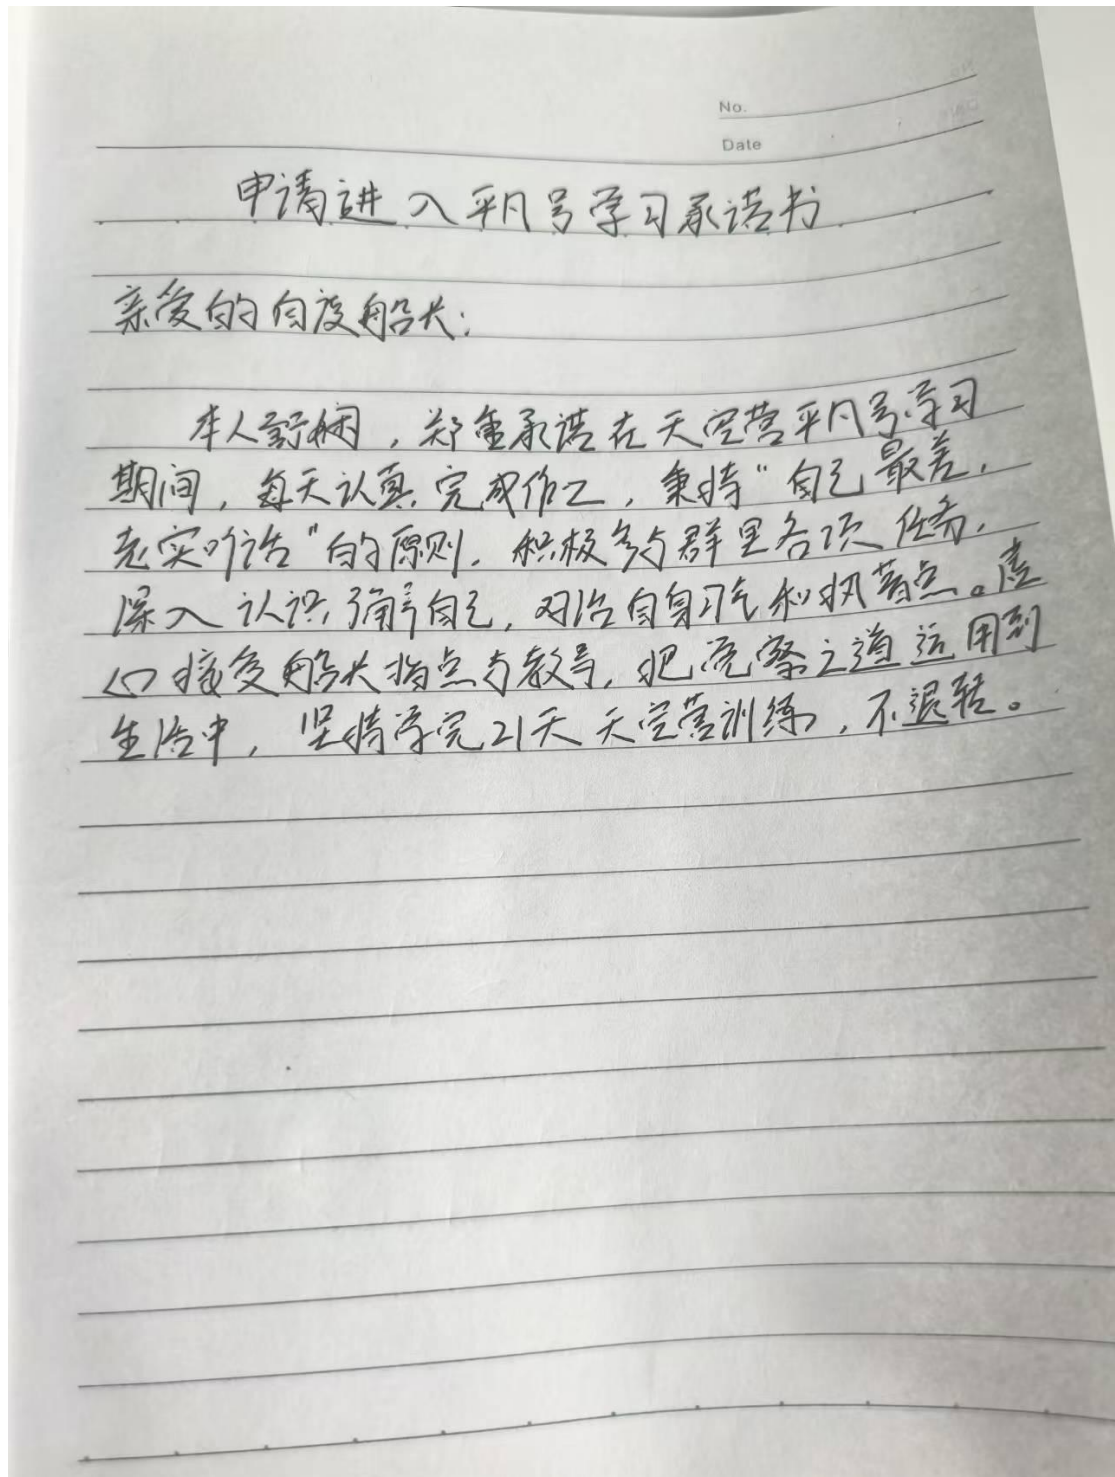 No.
Date
申请进入平凡号学习承诺书
亲爱的自度船长:
本人舒娴,郑重承诺在天空营平凡号学习
期间,每天认真完成作业,秉持"自己最差,
老实听话"的原则,积极参与群里各项任务,
深入认识了解自己,对治自身习气和执着点。虚
心接受船长指点与教导,把觉察之道运用到
生活中,坚持学完21天天空营训练,不退转。